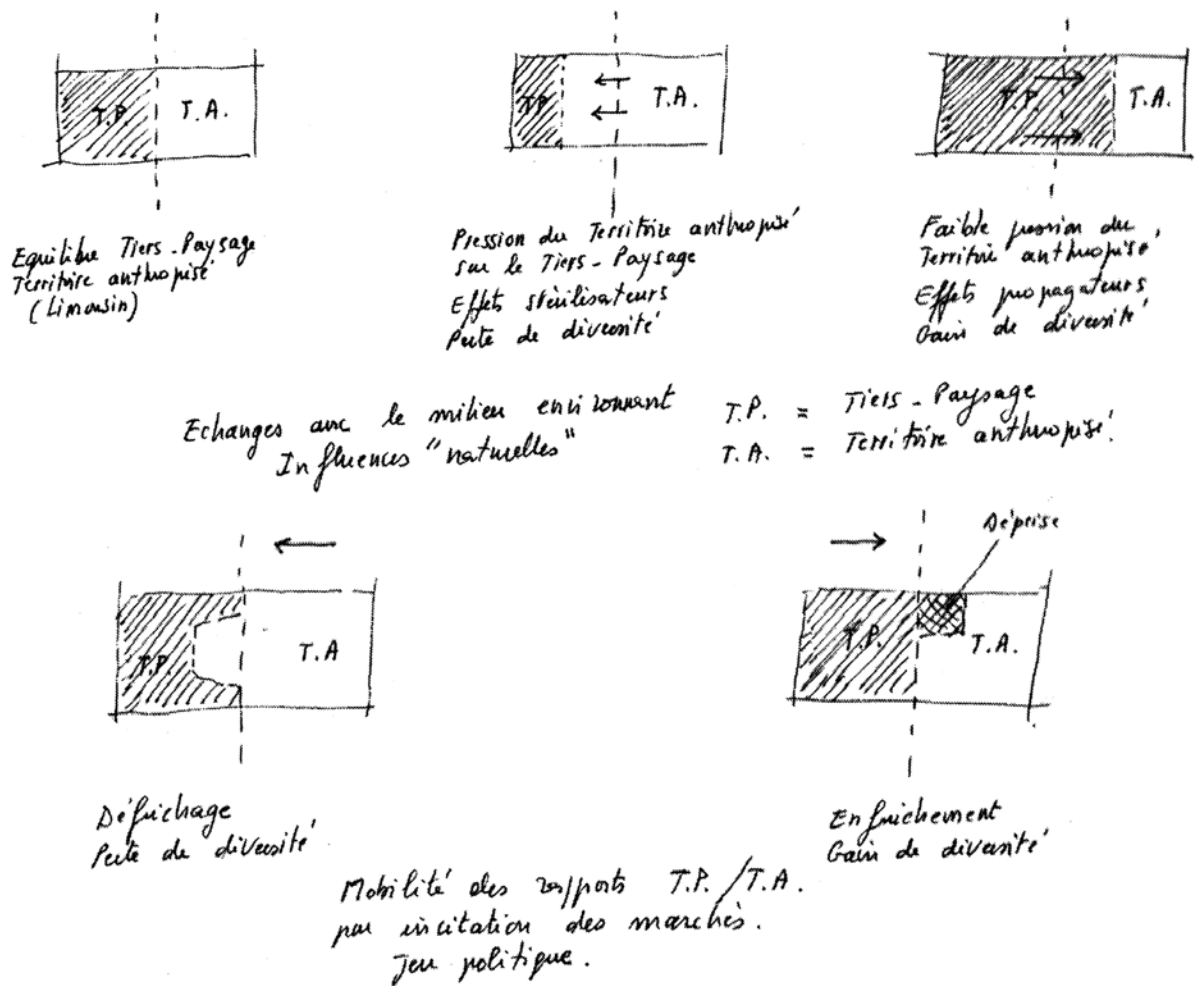 T.P.
T.A.
Equilibre Tiers-Paysage
Territoire anthropisé
(Limousin)
TP
T.A.
Pression du Territoire anthropisé
sur le Tiers-Paysage
Effets stérilisateurs
Perte de diversité
T.P.
T.A.
Faible pression du
Territoire anthropisé,
Effets propagateurs
Gain de diversité
Echanges avec le milieu environnant
Influences "naturelles"
T.P. = Tiers-Paysage
T.A. = Territoire anthropisé.
T.P.
T.A
Défrichage
Perte de diversité
Déprise
T.P.
T.A.
Enfrichement
Gain de diversité
Mobilité des rapports T.P./T.A.
par incitation des marchés.
Jeu politique.